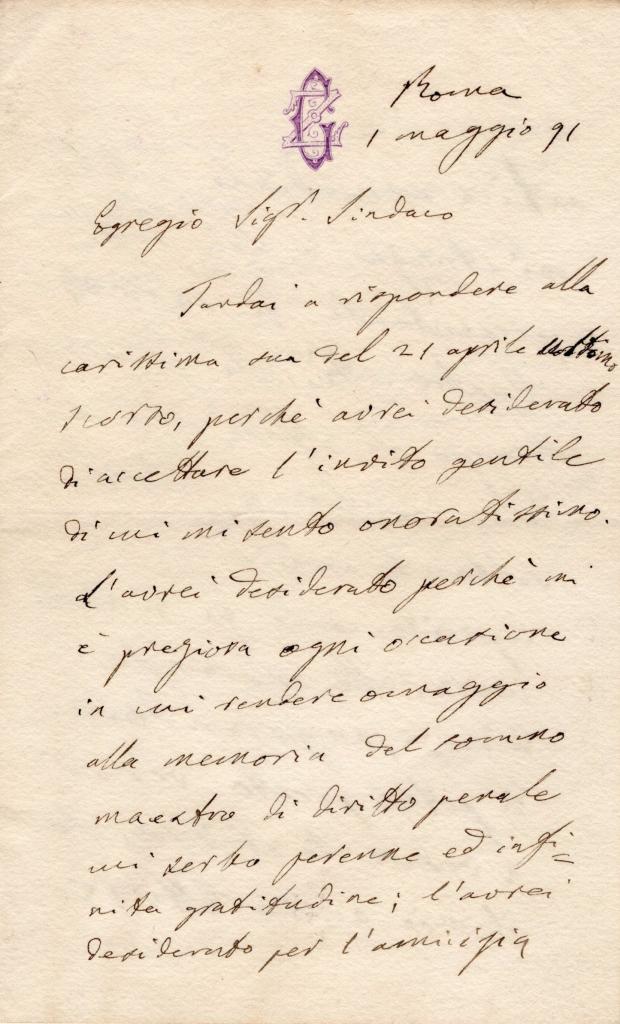 Roma
1 maggio 91
Egregio Sigr. Sindaco
Tardai a rispondere alla
carissima sua del 21 aprile ultimo
scorso, perchè avrei desiderato
di accettare l'invito gentile
di cui mi sento onoratissimo.
L'avrei desiderato perchè mi
è preziosa ogni occasione
in cui rendere omaggio
alla memoria del sommo
maestro di diritto penale
cui serbo perenne ed infi=
nita gratitudine; l'avrei
desiderato per l'amicizia